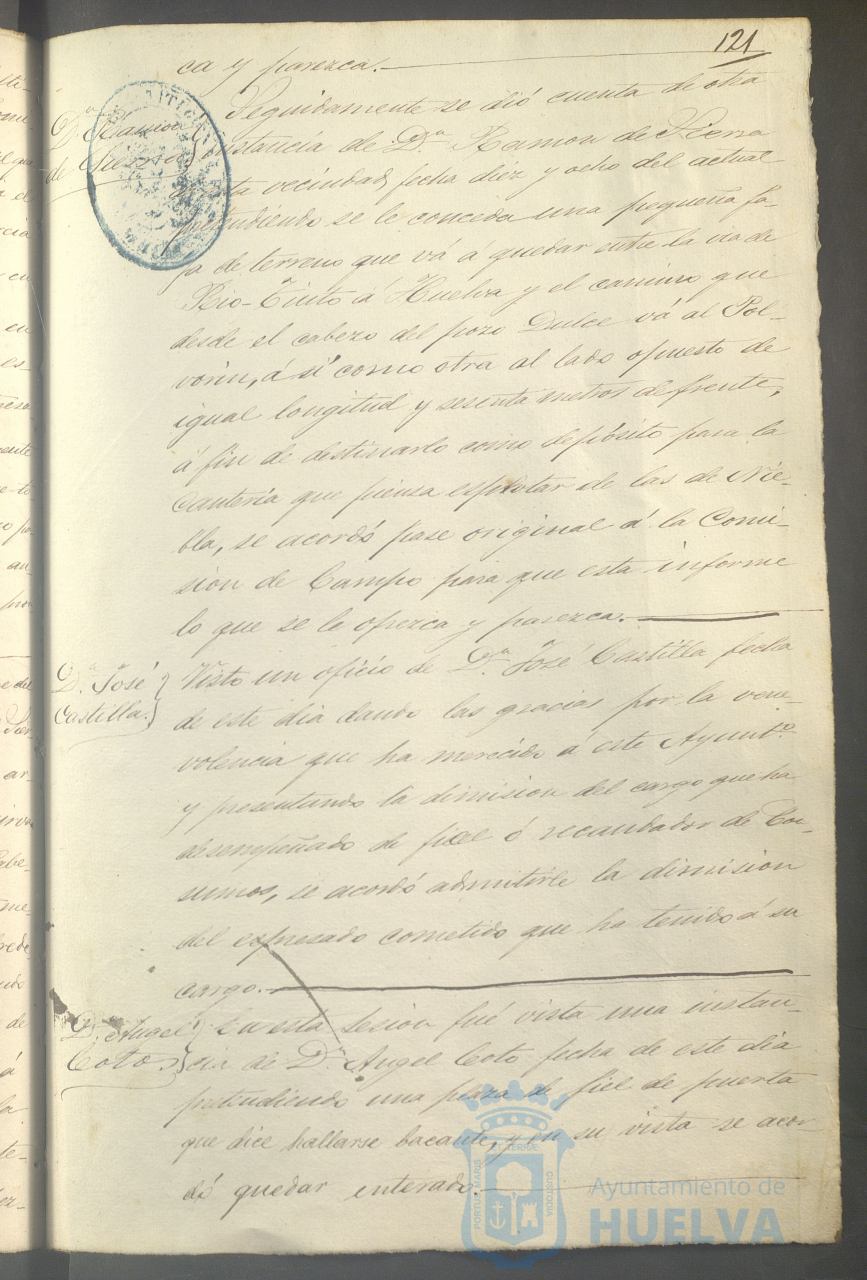 121
ca y parezca.
Dn. Ramon
de Sierra
Seguidamente se dió cuenta de otra
instancia de Dn. Ramon de Sierra
esta vecindad, fecha diez y ocho del actual
pretendiendo se le conceda una pequeña fa-
ja de terreno que vá á quedar entre la via de
Rio-Tinto á Huelva y el camino que
desde el cabezo del pozo Dulce vá al Pol-
vorin, á si como otra al lado opuesto de
igual longitud y sesenta metros de frente,
á fin de destinarlo como depósito para la
Cantería que piensa esplotar de las de Nie-
bla, se acordó pase original á la Comi-
sion de Campo para que esta informe
lo que se le ofrezca y parezca.
Dn. José
Castilla.
Visto un oficio de Dn. José Castilla fecha
de este dia dando las gracias por la vene-
volencia que ha merecido á este Ayunto.
y presentando la dimision del cargo que ha
desempeñado de fiel ó recaudador de Con-
sumos, se acordó admitirle la dimision
del espresado cometido que ha tenido á su
cargo.
D. Angel
Coto
En esta sesion fué vista una instan-
cia de Dn. Angel Coto fecha de este dia
pretendiendo una plaza de fiel de puerta
que dice hallarse bacante, y en su vista se acor
dó quedar enterado.
PORTUS MARIS
TERRAE
CUSTODIA
Ayuntamiento de
HUELVA